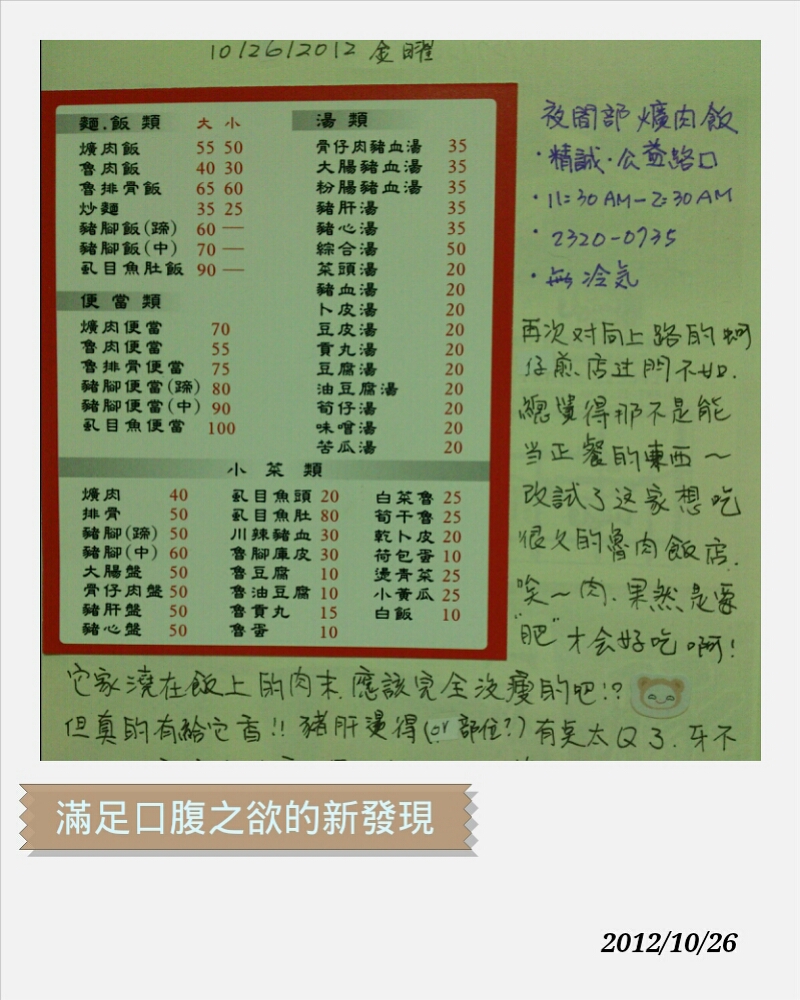 10/26/2012 金曜
麵.飯類 大 小
爌肉飯 55 50
魯肉飯 40 30
魯排骨飯 65 60
炒麵 35 25
豬腳飯(蹄) 60 —
豬腳飯(中) 70 —
虱目魚肚飯 90 —
便當類
爌肉便當 70
魯肉便當 55
魯排骨便當 75
豬腳便當(蹄) 80
豬腳便當(中) 90
虱目魚便當 100
湯類
骨仔肉豬血湯 35
大腸豬血湯 35
粉腸豬血湯 35
豬肝湯 35
豬心湯 35
綜合湯 50
菜頭湯 20
豬血湯 20
卜皮湯 20
豆皮湯 20
貢丸湯 20
豆腐湯 20
油豆腐湯 20
筍仔湯 20
味噌湯 20
苦瓜湯 20
小菜類
爌肉 40
排骨 50
豬腳(蹄) 50
豬腳(中) 60
大腸盤 50
骨仔肉盤 50
豬肝盤 50
豬心盤 50
虱目魚頭 20
虱目魚肚 80
川辣豬血 30
魯腳庫皮 30
魯豆腐 10
魯油豆腐 10
魯貢丸 15
魯蛋 10
白菜魯 25
筍干魯 25
乾卜皮 20
荷包蛋 10
燙青菜 25
小黃瓜 25
白飯 10
夜間部爌肉飯
·精誠·公益路口
·11:30 AM-2:30 AM
·2320-0735
·無冷気
再次对向上路的蚵
仔煎店过門不如.
總覺得那不是能
当正餐的東西～
改試了这家想吃
很久的魯肉飯店.
唉～肉.果然是要
"肥"才会好吃啊!
它家澆在飯上的肉末.應該完全沒瘦的吧!?
但真的有給它香!! 豬肝燙得(or部位?)有點太Q了.牙不
滿足口腹之欲的新發現
2012/10/26